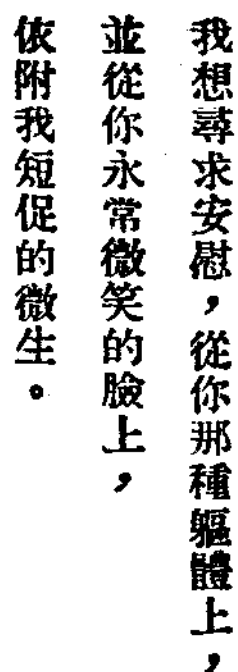 我想尋求安慰，從你那種軀體上，
並從你永常微笑的臉上，
依附我短促的微生。